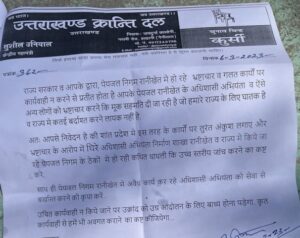 उत्तराखण्ड क्रान्ति दल
उत्तराखण्ड
सुशील उनियाल
केन्द्रीय महामंत्री
चुनाव चिन्ह
कुर्सी
पत्रांक 362
दिनांक 6-3-2023
राज्य सरकार व आपके द्वारा, पेयजल निगम रानीखेत में हो रहे भ्रष्टाचार व गलत कार्यों पर
कार्यवाही न करने से प्रतीत होता है आपके पेयजल निगम रानीखेत के अधिशासी अभियंता व ऐसे
अन्य लोगों को भ्रष्टाचार करने कि मूक सहमति दी जा रही है जो हमारे राज्य के लिए घातक है
व राज्य में कतई बर्दाश्त लायक नहीं है।
अतः आपसे निवेदन है की शांत प्रदेश में इस तरह के कार्यों पर तुरंत अंकुश लगाए और
भ्रष्टाचार के आरोप में घिरे अधिशासी अभियंता निर्माण शाखा रानीखेत व राज्य में किये जा
रहे पेयजल निगम के ठेकों में हो रही कथित धांधली कि उच्च स्तरीय जांच करने का कष्ट
करे.
साथ ही पेयजल निगम रानीखेत में अवैध कार्य कर रहे अधिशासी अभियंता को सेवा से
बर्खास्त करने की कृपा करे.
उचित कार्यवाही न किये जाने पर उक्रांद को उग्र आन्दोलन के लिए बाध्य होना पड़ेगा. कृत
कार्यवाही से हमे भी अवगत कराने का कष्ट कीजियेगा.